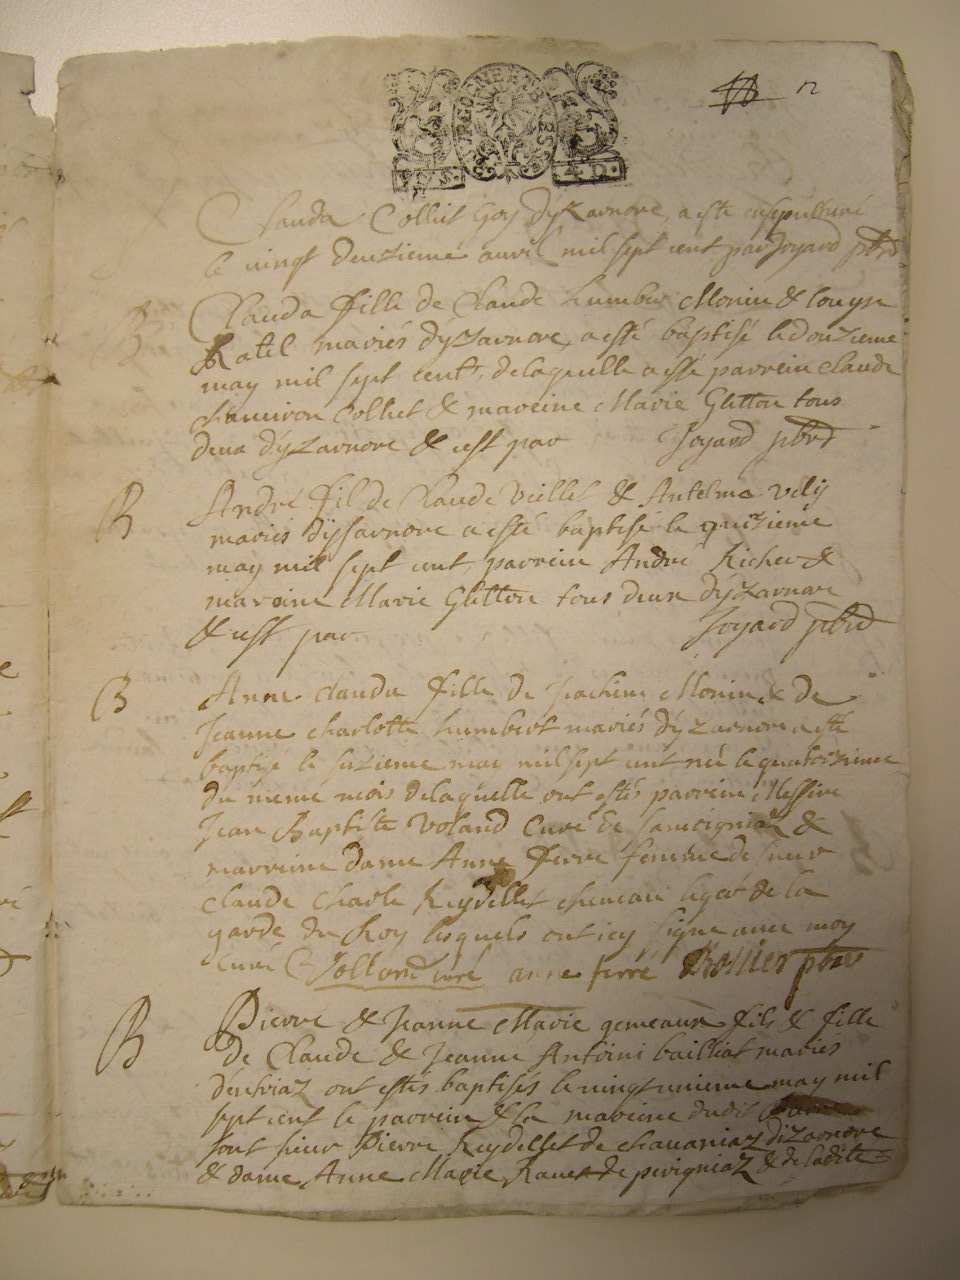 BVRGOGNE ET BRES
4 D.
Clauda Colliet Goy dyzarnore, a esté ensepulturé
le vingt deuxieme avril mil sept cent par Joyard pbre
Clauda fille de Claude humber Monin & Louyse
Ratel mariés dyzarnore, a esté baptisé le douzieme
may mil sept cent, de laquelle a esté parrein claude
Colliet & mareine Marie Glitton tous
deux dyzarnore & est par Joyard pbre
B André fil de Claude Viellet & Antelma
mariés dysarnore a esté baptisé le quizieme
may mil sept cent, parrein André Richer &
mareine Marie Glitton tous deux dyzarnore
& est par Joyard pbre
B Anne clauda fille de Joachim Monin & de
Jeanne charlotte humbert mariés dyzarnore a esté
baptisé le sezieme may mil sept cent née le quatorzieme
du meme mois de laquelle ont estés parrein Messire
Jean Baptiste Voland Curé de &
marreine dame Anne ferre femme de sieur
claude charle Reydellet de la
garde du Roy lesquels ont icy signe avec moy
curé Volland curé anne ferré pbre
B Pierre & Jeanne Marie gemeaux fils & fille
de Claude & Jeanne Antoini bailliat mariés
ont estés baptisés le vingt unieme may mil
sept cent le parrein & la mareine dudit
sont sieur Pierre Reydellet de chavaniaz dizarnore
& dame Anne Marie de & de ladite